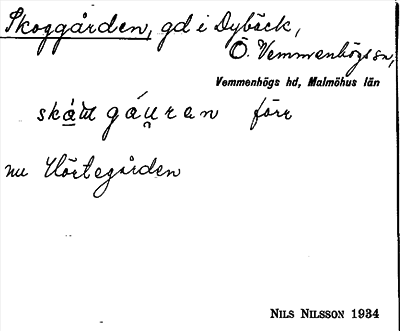 Skoggården, gd i Dybäck,
Ö. Vemmenhögs sn,
Vemmenhögs hd, Malmöhus län
gáu̯ran förr
nu Hörtegården
NILS NILSSON 1934